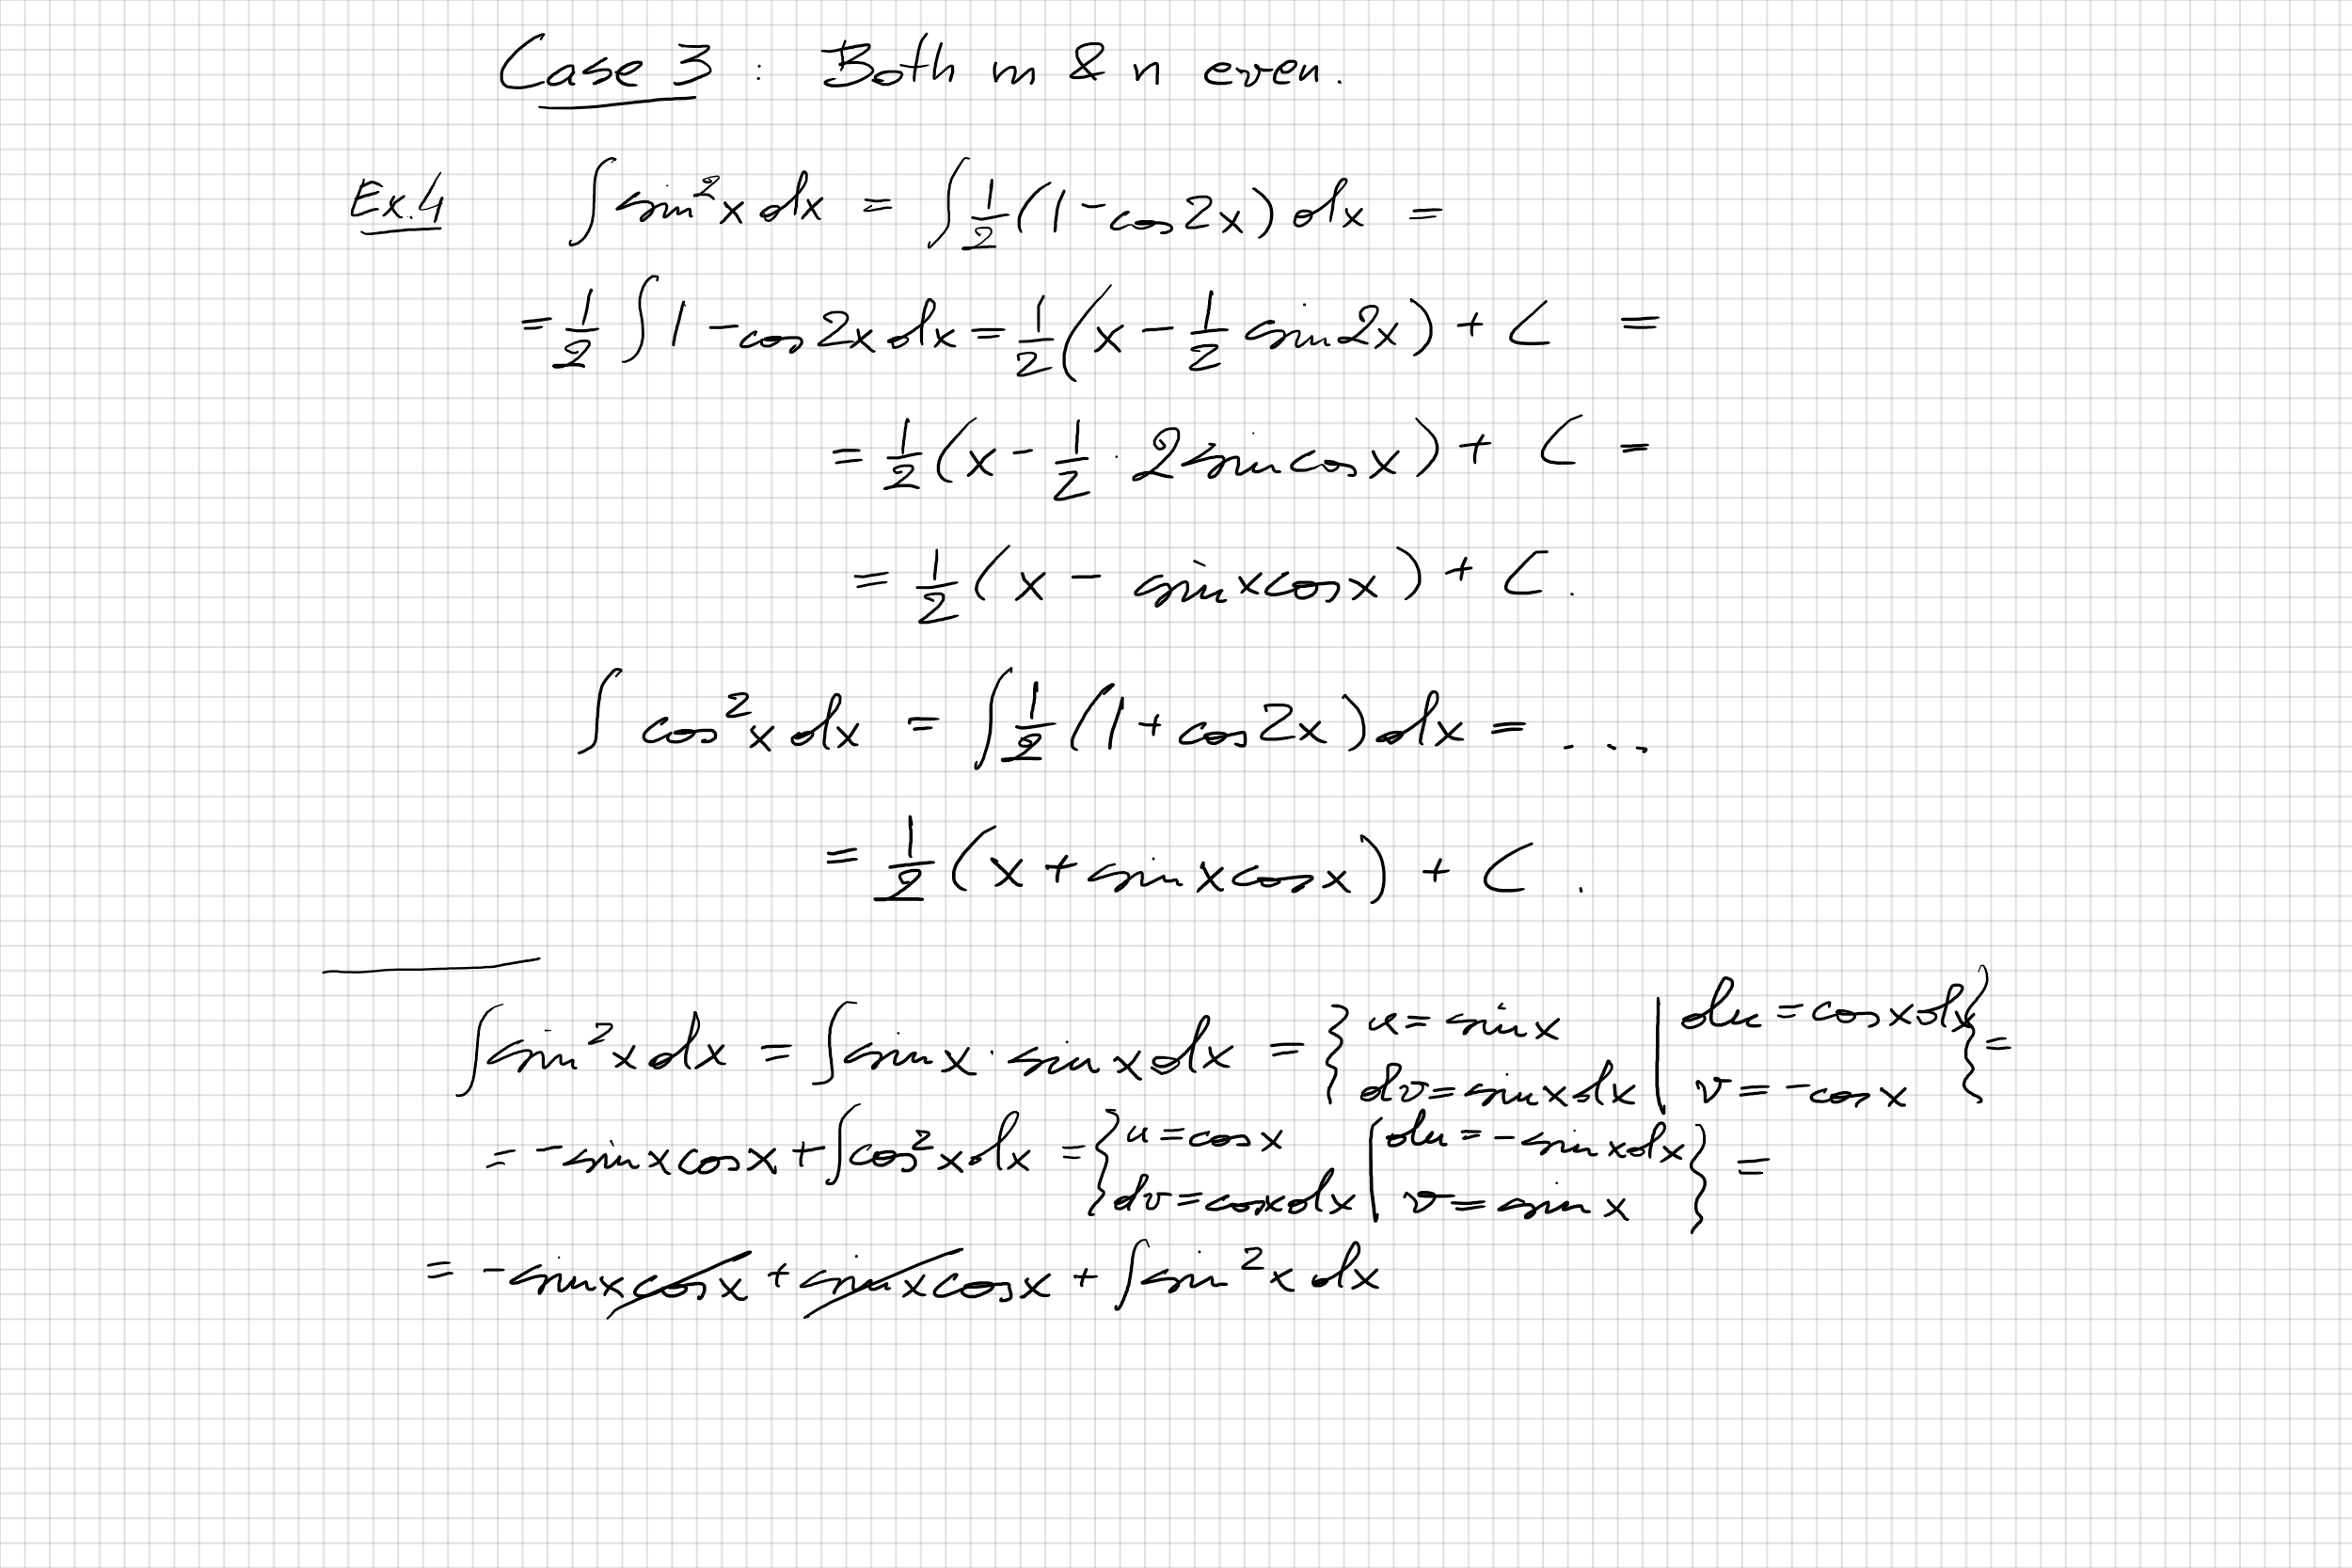 Case 3 : Both m & n even.
Ex.4 ∫ sin²x dx = ∫ 1/2 (1 - cos 2x) dx =
= 1/2 ∫ 1 - cos 2x dx = 1/2 (x - 1/2 sin 2x) + C =
= 1/2 (x - 1/2 · 2 sin cos x) + C =
= 1/2 (x - sin x cos x) + C.
∫ cos²x dx = ∫ 1/2 (1 + cos 2x) dx = ...
= 1/2 (x + sin x cos x) + C.
∫ sin²x dx = ∫ sin x · sin x dx = { u = sin x | du = cos x dx } =
dv = sin x dx | v = -cos x
= -sin x cos x + ∫ cos²x dx = { u = cos x | du = -sin x dx } =
dv = cos x dx | v = sin x
= -sin x cos x + sin x cos x + ∫ sin²x dx